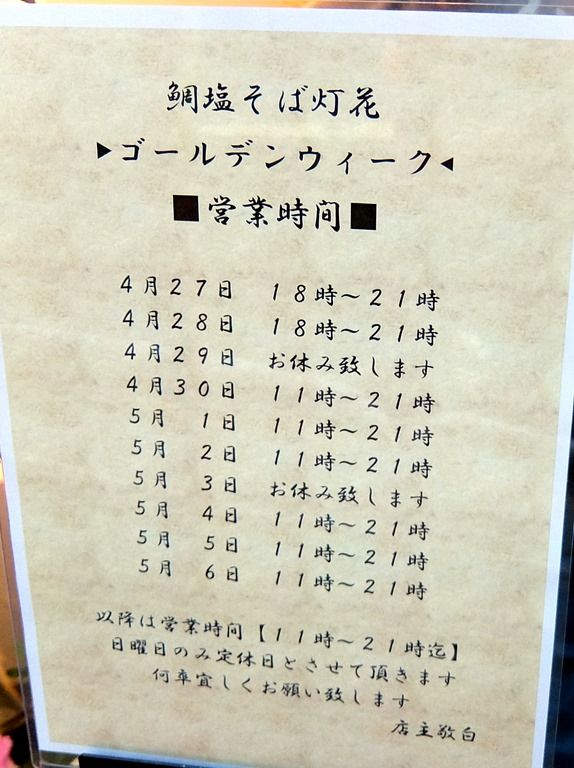 鯛塩そば灯花
▶ゴールデンウィーク◀
■営業時間■
4月27日 18時〜21時
4月28日 18時〜21時
4月29日 お休み致します
4月30日 11時〜21時
5月 1日 11時〜21時
5月 2日 11時〜21時
5月 3日 お休み致します
5月 4日 11時〜21時
5月 5日 11時〜21時
5月 6日 11時〜21時
以降は営業時間【11時〜21時迄】
日曜日のみ定休日とさせて頂きます
何卒宜しくお願い致します
店主敬白